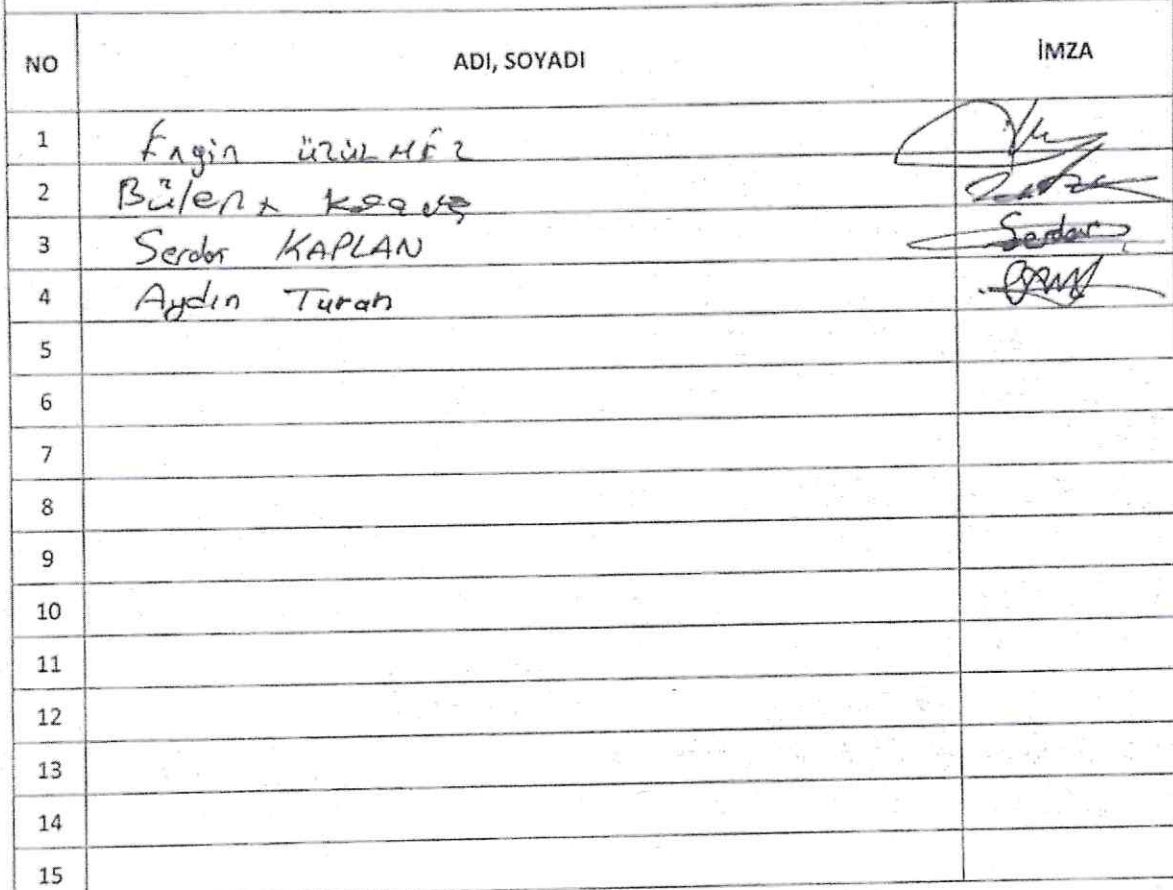 NO ADI, SOYADI İMZA
1 Engin ÜZÜLMEZ
2 Bülent
3 Serdar KAPLAN Serdar
4 Aydın Turan
5
6
7
8
9
10
11
12
13
14
15